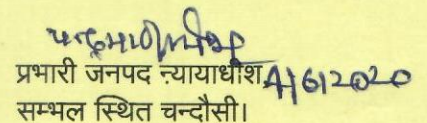 प्रभारी जनपद न्यायाधीश 4/6/2020
सम्भल स्थित चन्दौसी।